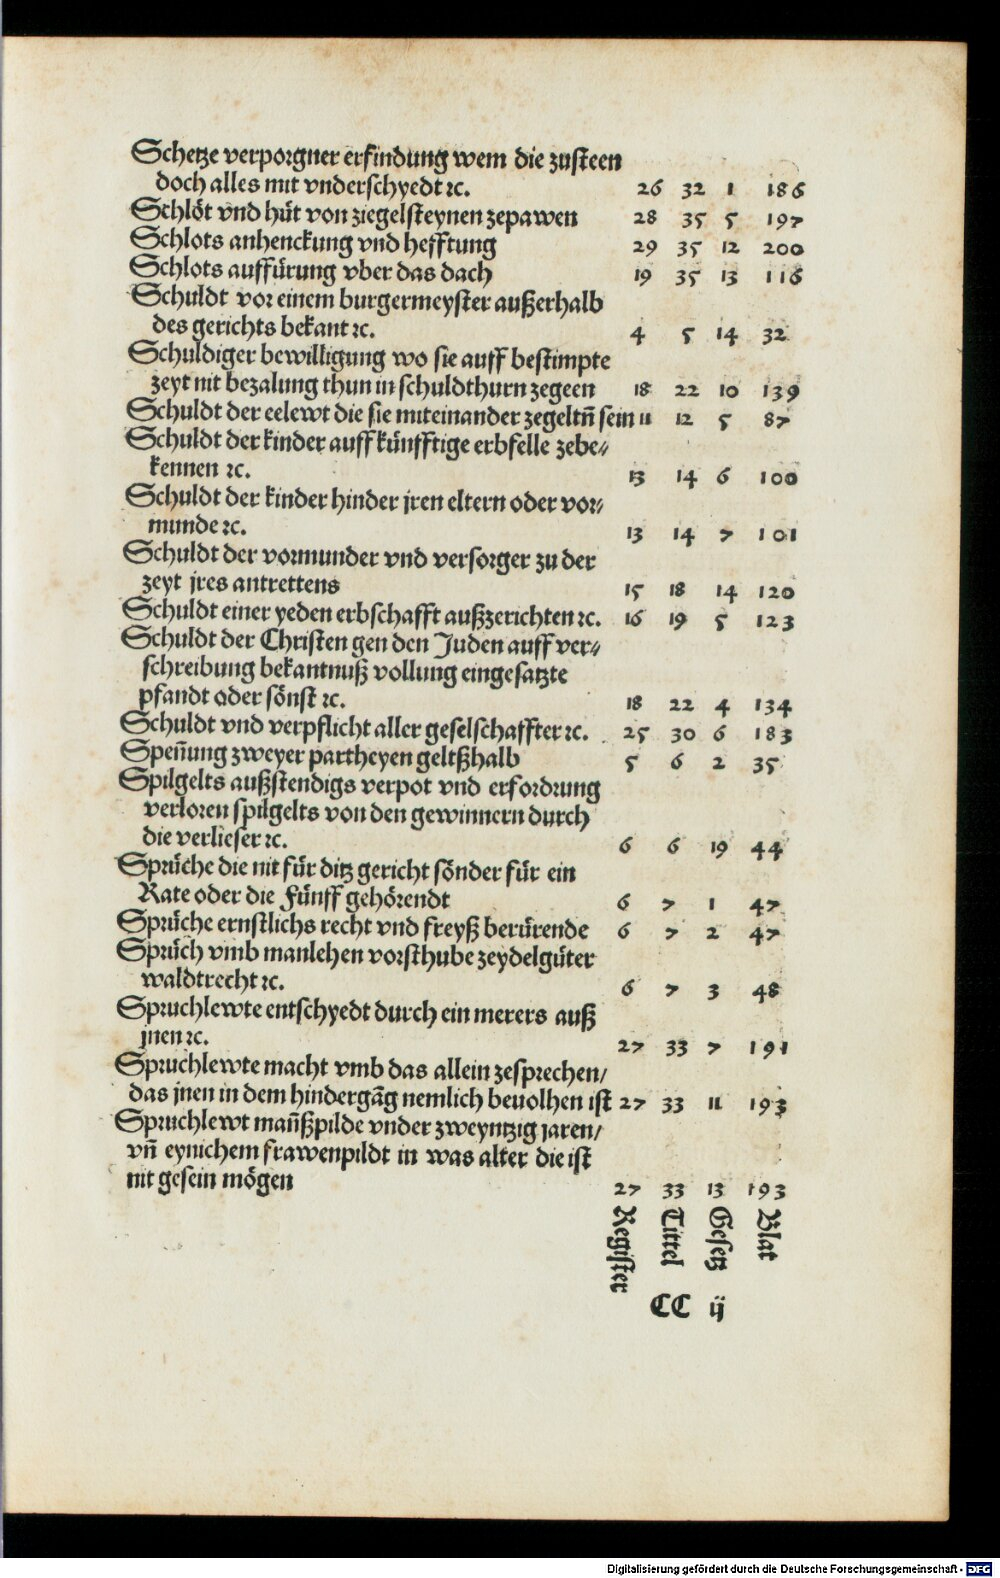 Schetze verporgner erfindung wem die zusteen
doch alles mit vnderschyedt ꝛc. 26 32 1 186
Schlöt vnd hüt von ziegelsteynen zepawen 28 35 5 197
Schlots anhenckung vnd hefftung 29 35 12 200
Schlots auffürung vber das dach 19 35 13 116
Schuldt vor einem burgermeyster außerhalb
des gerichts bekant ꝛc. 4 5 14 32
Schuldiger bewilligung wo sie auff bestimpte
zeyt nit bezalung thun in schuldthurn zegeen 18 22 10 139
Schuldt der eelewt die sie miteinander zegeltn̄ sein 11 12 5 87
Schuldt der kinder auff künfftige erbfelle zebe⸗
kennen ꝛc. 13 14 6 100
Schuldt der kinder hinder jren eltern oder vor⸗
munde ꝛc. 13 14 7 101
Schuldt der vormunder vnd versorger zu der
zeyt jres antrettens 15 18 14 120
Schuldt einer yeden erbschafft außzerichten ꝛc. 16 19 5 123
Schuldt der Christen gen den Juden auff ver⸗
schreibung bekantnuß vollung eingesatzte
pfandt oder sönst ꝛc. 18 22 4 134
Schuldt vnd verpflicht aller geselschaffter ꝛc. 25 30 6 183
Spen̄ung zweyer partheyen geltßhalb 5 6 2 35
Spilgelts außstendigs verpot vnd erfordrung
verloren spilgelts von den gewinnern durch
die verlieser ꝛc. 6 6 19 44
Sprüche die nit für ditz gericht sönder für ein
Rate oder die Fünff gehörendt 6 7 1 47
Sprüche ernstlichs recht vnd freyß berürende 6 7 2 47
Sprüch vmb manlehen vorsthube zeydelgüter
waldtrecht ꝛc. 6 7 3 48
Spruchlewte entschyedt durch ein merers auß
jnen ꝛc. 27 33 7 191
Spruchlewte macht vmb das allein zesprechen/
das jnen in dem hindergāg nemlich beuolhen ist 27 33 11 193
Spruchlewt man̄ßpilde vnder zweyntzig jaren/
vn̄ eynichem frawenpildt in was alter die ist
nit gesein mögen 27 33 13 193
Register Tittel Gesetz Blat
CC ij
Digitalisierung gefördert durch die Deutsche Forschungsgemeinschaft - DFG